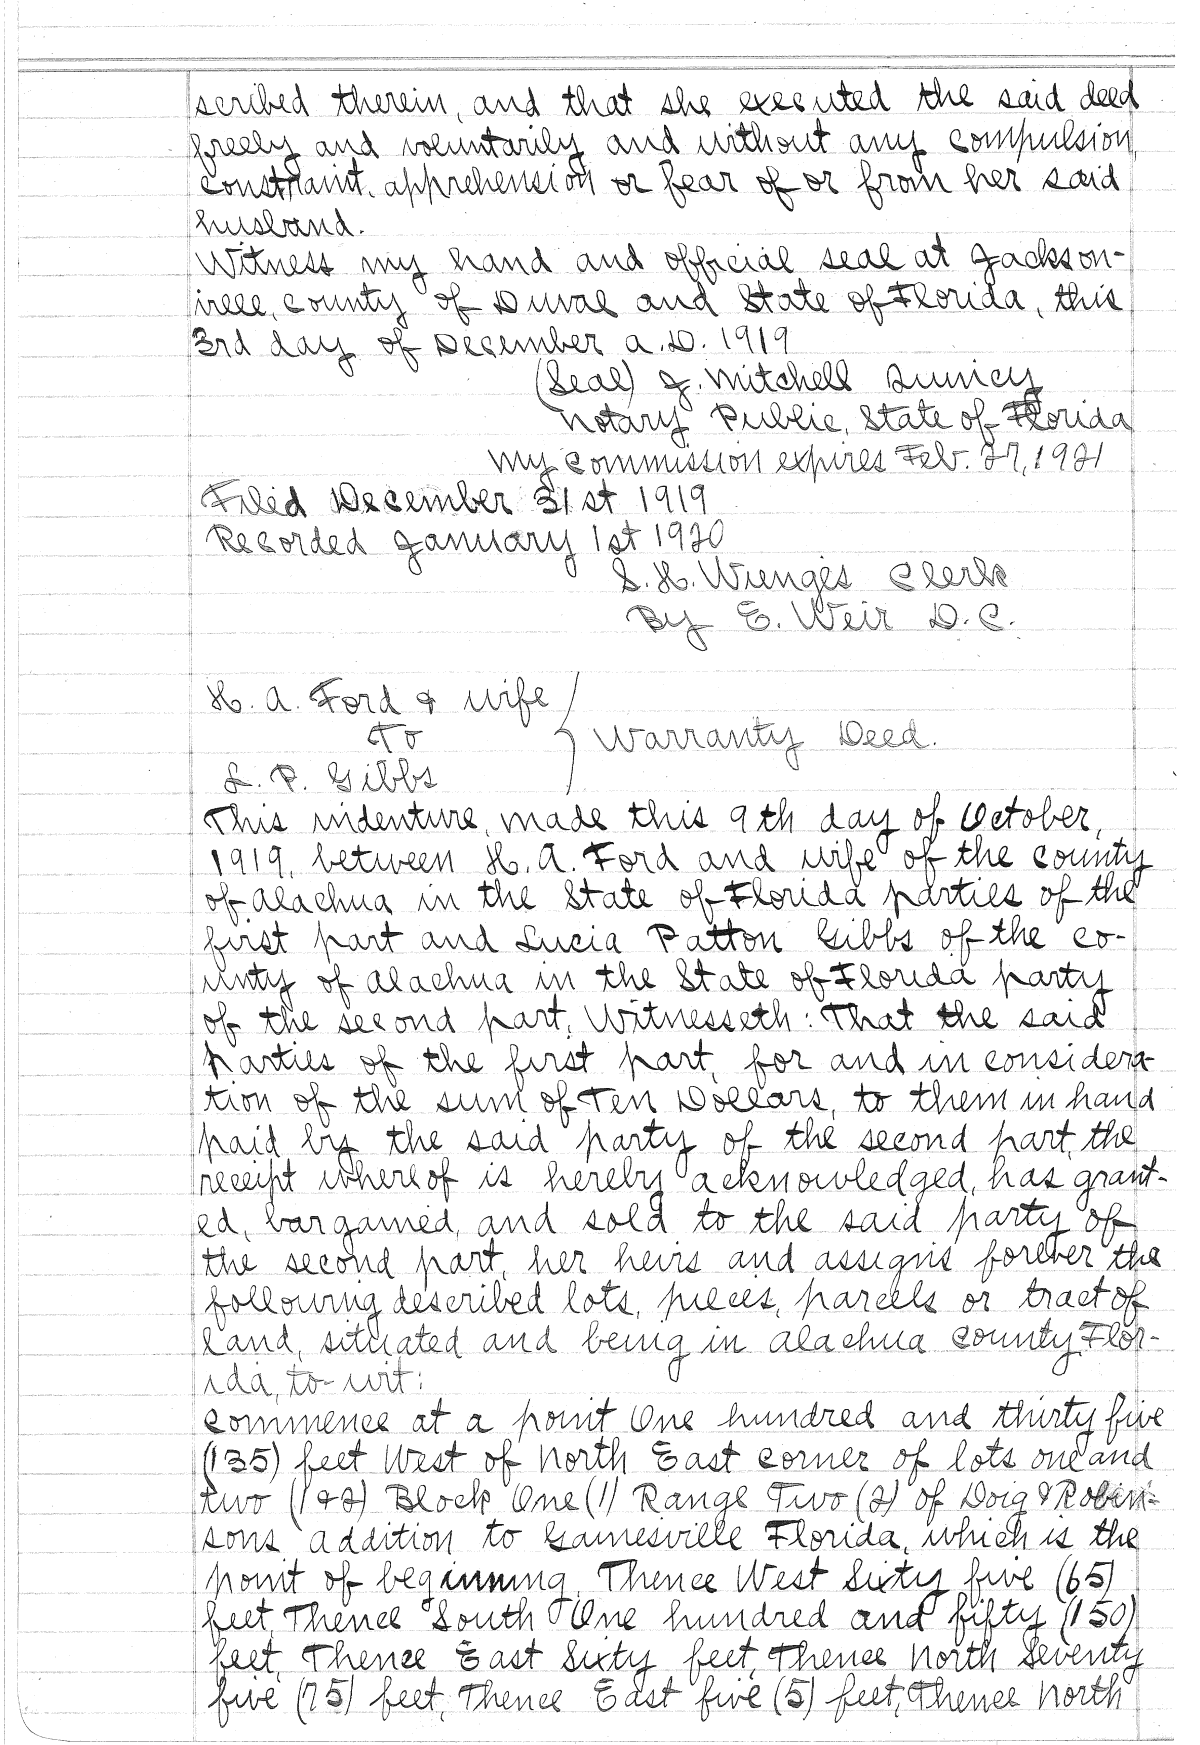 scribed therein, and that she executed the said deed
freely and voluntarily and without any compulsion,
constraint, apprehension or fear of or from her said
husband.
Witness my hand and official seal at Jackson-
ville, County of Duval and State of Florida, this
3rd day of December A.D. 1919
(Seal) J. Mitchell
Notary Public, State of Florida
My commission expires Feb. 27, 1921
Filed December 31st 1919
Recorded January 1st 1920
S. H. Wienges Clerk
By E. Weir D.C.
H. A. Ford & wife
To
Warranty Deed.
L. P. Gibbs
This indenture, made this 9th day of October,
1919, between H. A. Ford and wife of the county
of Alachua in the State of Florida parties of the
first part and Lucia Patton Gibbs of the co-
unty of Alachua in the State of Florida party
of the second part, Witnesseth: That the said
parties of the first part, for and in considera-
tion of the sum of Ten Dollars, to them in hand
paid by the said party of the second part, the
receipt whereof is hereby acknowledged, has grant-
ed, bargained, and sold to the said party of
the second part, her heirs and assigns forever the
following described lots, pieces, parcels or tract of
land, situated and being in Alachua County, Flor-
ida, to-wit:
Commence at a point One hundred and thirty five
(135) feet West of North East corner of lots one and
two (1&2) Block One (1) Range Two (2) of Doig & Robin-
sons addition to Gainesville Florida, which is the
point of beginning, Thence West Sixty five (65)
feet, Thence South One hundred and fifty (150)
feet, Thence East Sixty feet, Thence North Seventy
five (75) feet, Thence East five (5) feet, Thence North